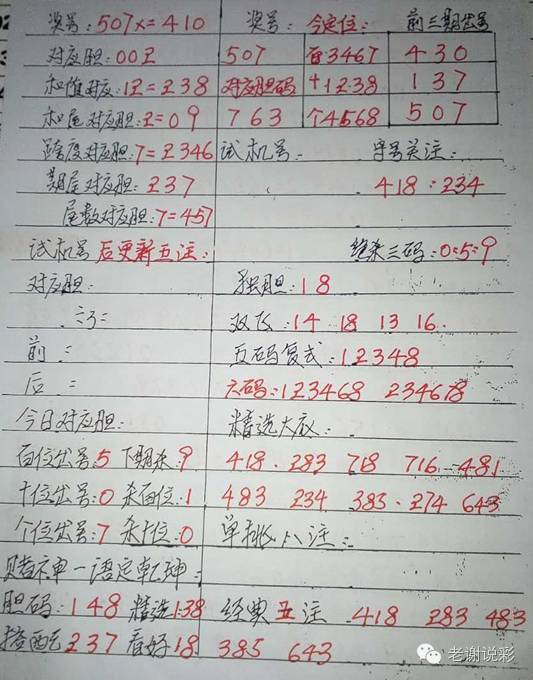 奖号:507x=410 奖号: 今定位: 前三期出号
对应胆:00王 507 百3467 430
和值对应:12=238 对应胆码 十1238 137
和尾对应胆:2=09 763 个4568 507
跨度对应胆:7=2346 试机号: 字号关注:
期尾对应胆:237 418:234
尾数对应胆:7=457
试机号后更新五注: 绝杀三码:0:5:9
对应胆: 独胆:18
双飞:14 18 13 16.
前: 五码复式:12348
后: 六码:123468 234678
今日对应胆: 精选大底:
百位出号:5 下期杀:9 418. 283 718 716 481
十位出号:0 杀百位:1 483 234 383. 274 643
个位出号:7 杀十位:0 单挑八注:
赌神一语定乾坤:
胆码:148 精选138 经典五注 418 283 483
搭配237 看好18 385 643
老谢说彩